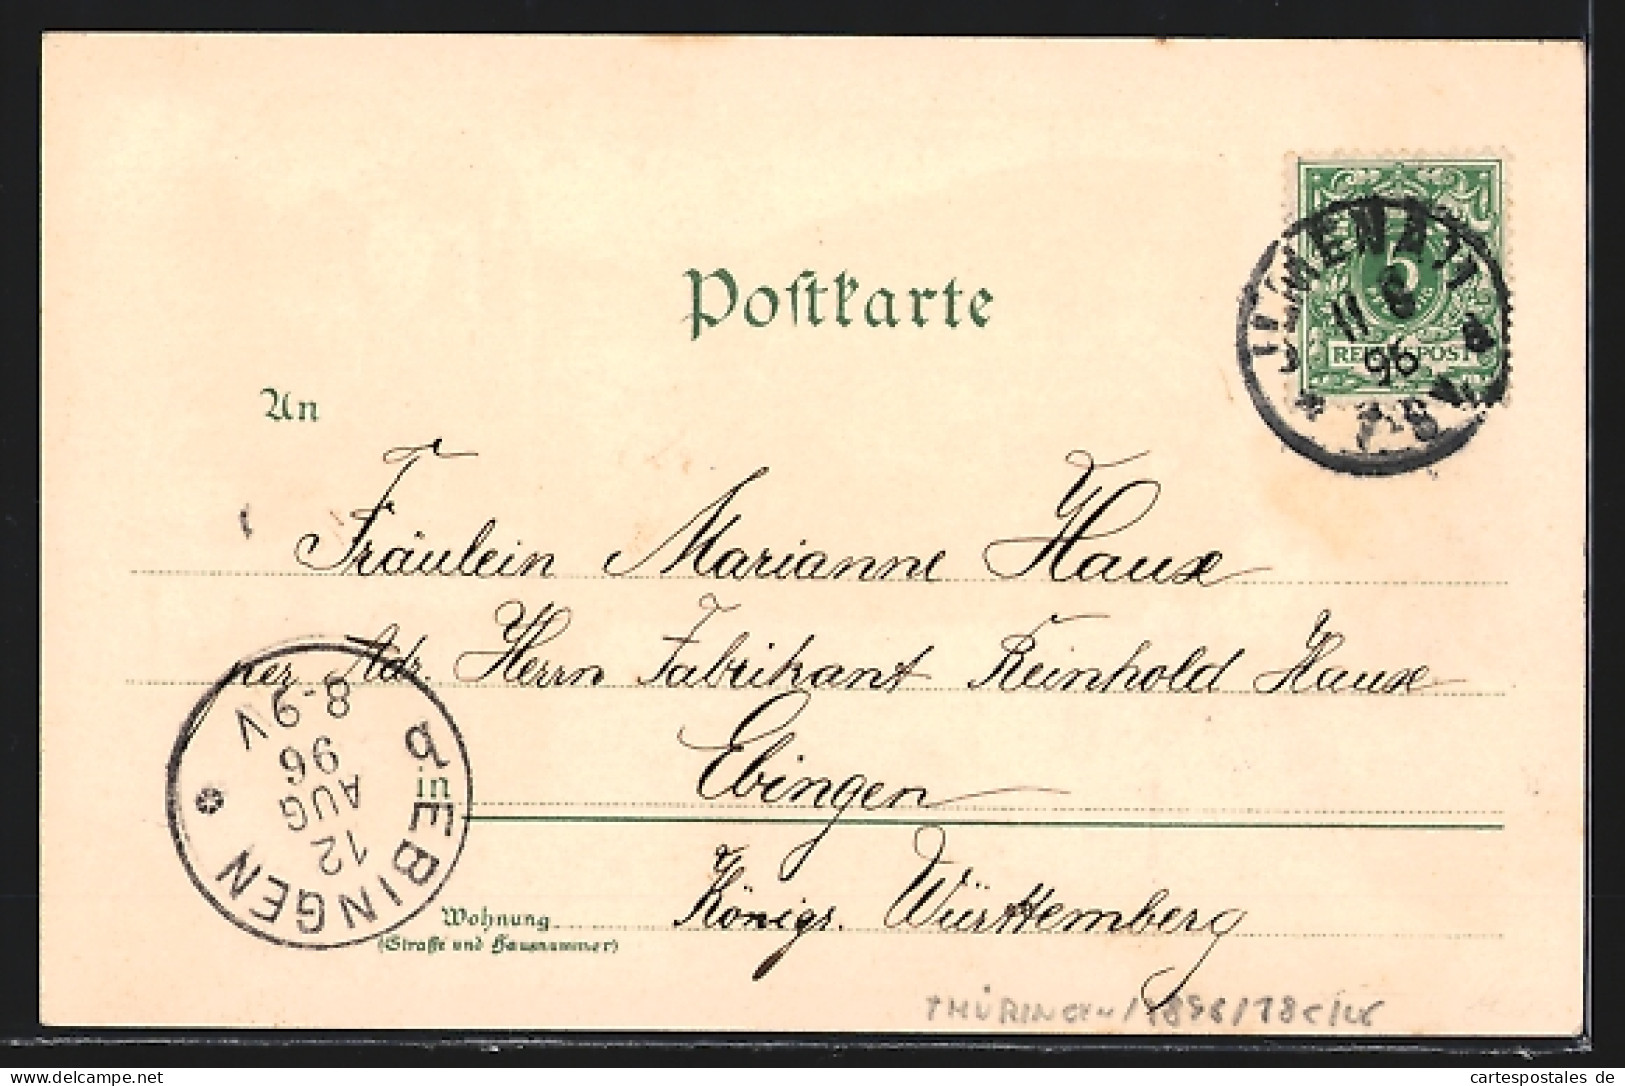 Postkarte
ILMENAU
11 8
96
7-8V.
5
REICHSPOST
An
Fräulein Marianne Haux
per Adr. Herrn Fabrikant Reinhold Haux
in Ebingen
Wohnung Königr. Württemberg
(Straße und Hausnummer)
EBINGEN
12
AUG
96
8-9V
THÜRINGEN/1896/
delcampe.net
cartespostales de